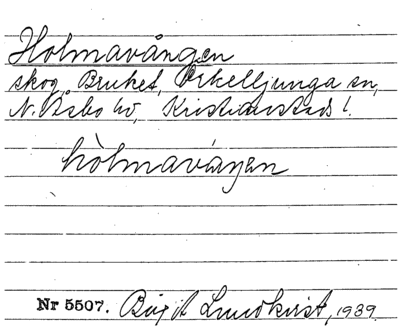 Holmavången
skog, Bruket, Örkelljunga sn,
N. Åsbo hd, Kristianstads l.
hòlmaváŋen
Nr 5507. Birgit Lundkvist, 1939.